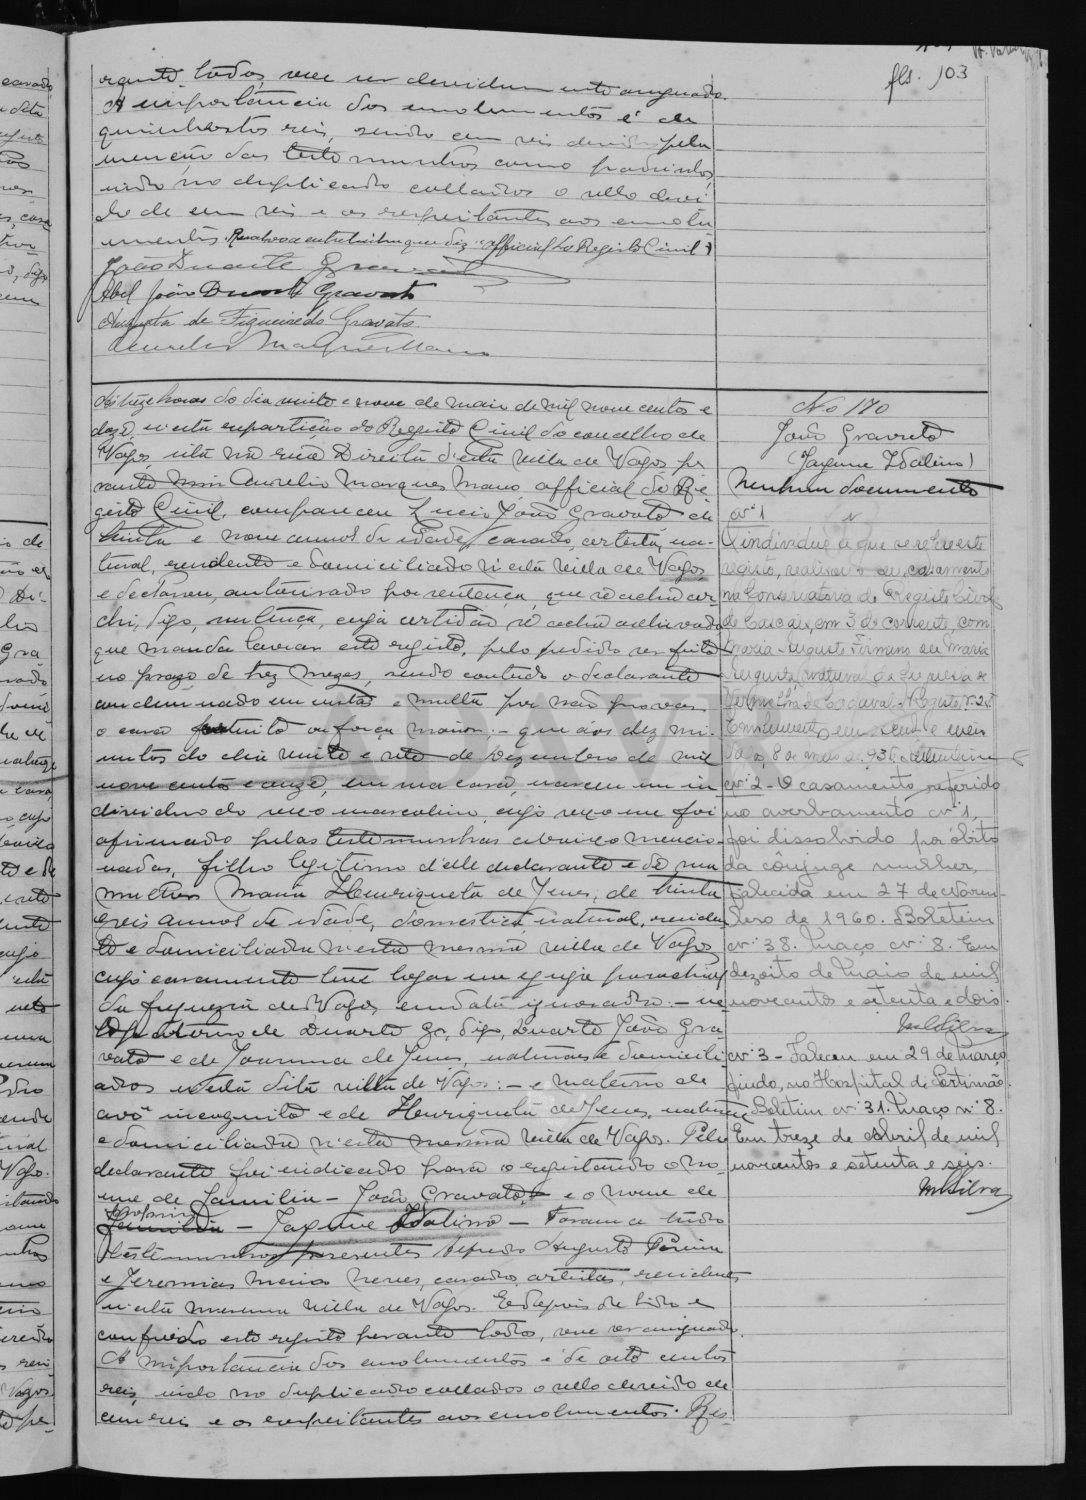 fls. 103
perante todos, vae ser devidamente assignado.
A importancia dos emolumentos é de
quinhentos reis, sendo cem reis devidos pela
menção das testemunhas como padrinhos,
indo no duplicado collados o sello devi-
do de cem reis e os respeitantes aos emolu-
mentos. Resalvo a entrelinha que diz "official do Registo Civil"
João Duarte Gravato
Abel João Duarte Gravato
Augusta de Figueiredo Gravato
Aurelio Marques Mano
Ás treze horas do dia vinte e nove de maio de mil nove centos e
doze, n'esta repartição do Registo Civil do concelho de
Vagos, sita na rua Direita d'esta villa de Vagos, pe-
rante mim Aurelio Marques Mano, official do Re-
gisto Civil, compareceu Lucio João Gravato de
trinta e nove annos de idade, casado, artista, na-
tural, residente e domiciliado n'esta villa de Vagos,
e declarou, autorisado por sentença, que se acha ar-
chi, digo, sentença, cuja certidão se acha archivada
que manda lavrar este registo, pelo pedido ser feito
no prazo de trez mezes, sendo contudo o declarante
condemnado em custas e multa por não provar
o caso fortuito ou força maior: – que ás dez mi-
nutos do dia vinte e sete de Dezembro de mil
nove centos e onze, em sua casa, nasceu um in-
dividuo do sexo masculino, cujo sexo me foi
afirmado pelas testemunhas abaixo mencio-
nadas, filho legitimo d'elle declarante e de sua
mulher Maria Henriqueta de Jesus, de trinta
e seis annos de idade, domestica, natural, residen-
te e domiciliada n'esta mesma villa de Vagos,
cujo casamento teve logar na egreja parochial
da freguezia de Vagos, em data ignorada: – ne-
to paterno de Duarte Gr, digo, Duarte João Gra-
vato e de Joanna de Jesus, naturaes e domicili-
ados n'esta dita villa de Vagos: – e materno de
avô incognito e de Henriqueta de Jesus, natural
e domiciliada n'esta mesma villa de Vagos. Pelo
declarante foi indicado para o registando o no-
me de familia – João Gravato, e o nome de
proprio
familia – Jayme Idalino – Foram a tudo
testemunhas presentes Alfredo Augusto Pereira
e Jeremias Maria Neves, casados, artistas, residentes
n'esta mesma villa de Vagos. E depois de lido e
conferido este registo perante todos, vae ser assignado.
A importancia dos emolumentos é de oito centos
reis, indo no duplicado collados o sello devido de
cem reis e os respeitantes aos emolumentos. Res-
No 170
João Gravato
(Jayme Idalino)
Nenhum documento
nº 1
O individuo a que se refere este
registo, realizou o seu casamento
na Conservatória do Registo Civil
de Cascais, em 3 do corrente, com
Maria Augusta Firmino ou Maria
Augusta, natural da freguesia de
nº 2 – O casamento referido
no averbamento nº 1,
foi dissolvido por óbito
da cônjuge mulher,
falecida em 27 de Novem-
bro de 1960. Boletim
nº 38. Maço nº 8. Em
dezoito de Maio de mil
novecentos e setenta e dois.
MSilva
nº 3 – Faleceu em 29 de Março
findo, no Hospital de Portimão.
Boletim nº 31. Maço nº 8.
Em treze de Abril de mil
novecentos e setenta e seis.
MSilva